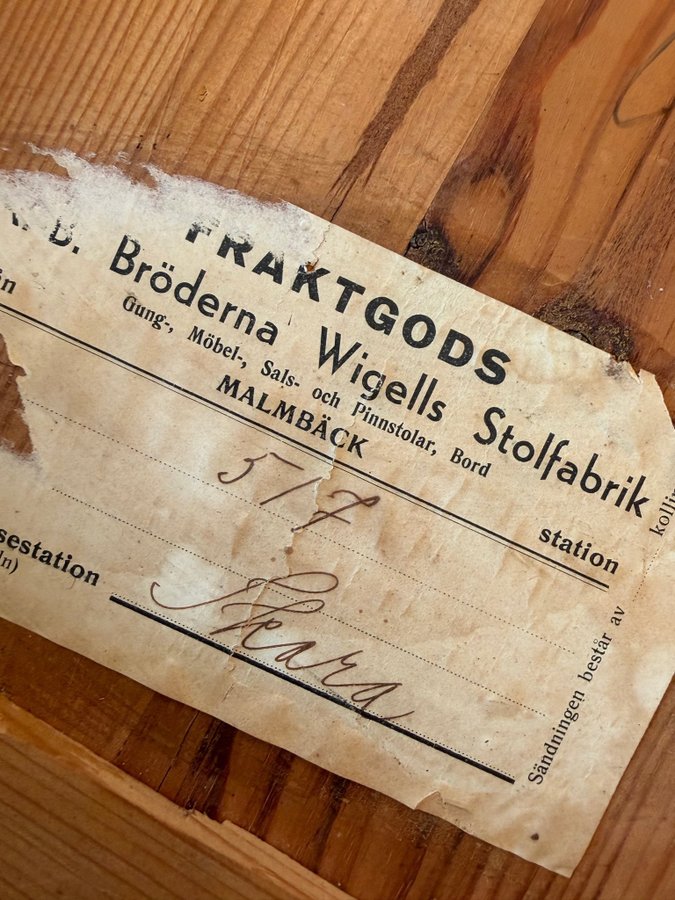 FRAKTGODS
B. Bröderna Wigells Stolfabrik
Gung-, Möbel-, Sals- och Pinnstolar, Bord
MALMBÄCK
station
517
Skara
Sändningen består av